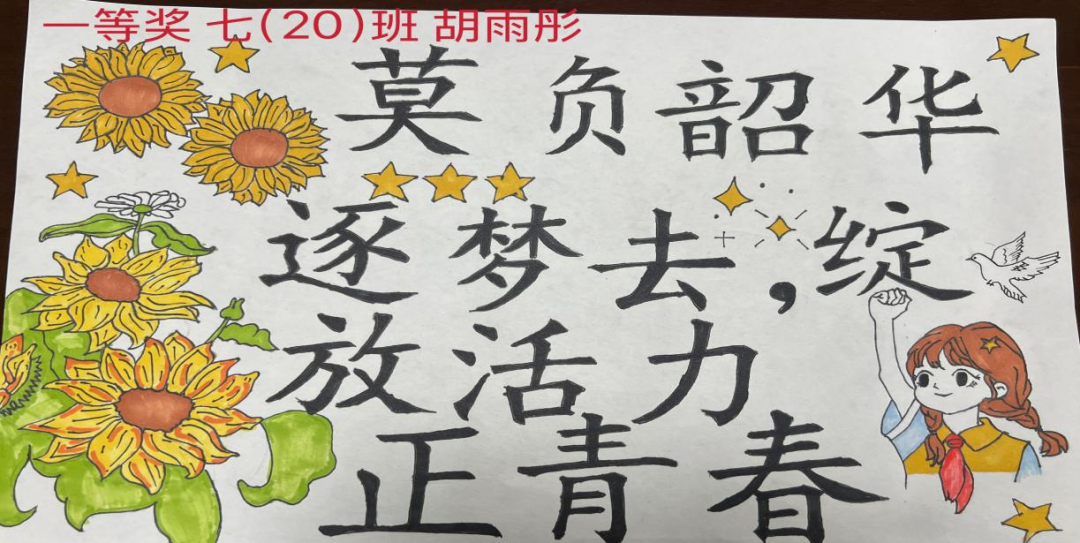 一等奖 七(20)班 胡雨彤
莫负韶华
逐梦去，绽
放活力
正青春